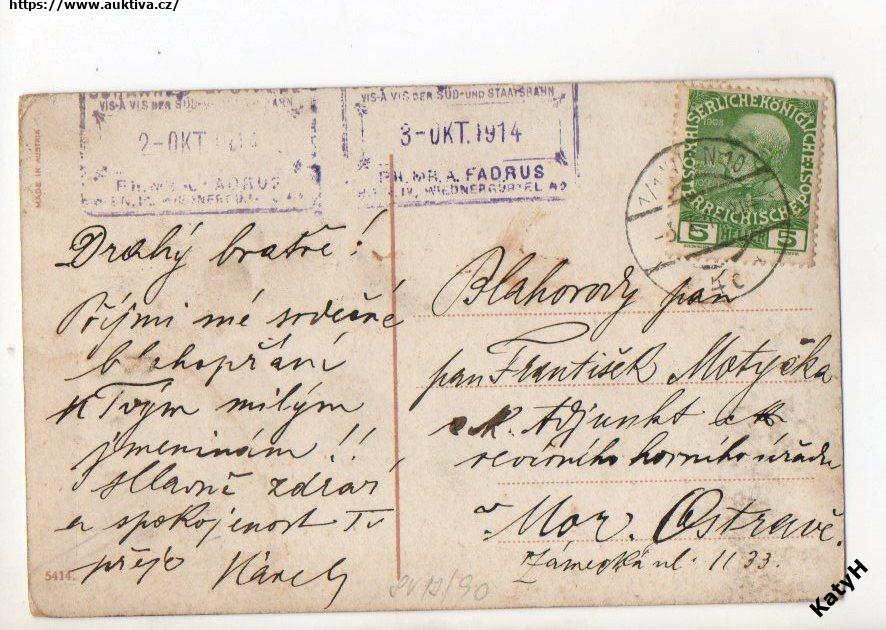 https://www.auktiva.cz/
VIS-À VIS DER SÜD-UND STAATSBAHN
2-OKT.1914
PH. MR. A. FADRUS
WIEN, IV. WIEDNERGÜRTEL
VIS-À VIS DER SÜD-UND STAATSBAHN
3-OKT.1914
PH. MR. A. FADRUS
WIEN, IV. WIEDNERGÜRTEL
1908
KAISERLICHEKÖNIGLICHE
ÖSTERREICHISCHE POST
5 HELLER 5
1/1 WIEN 10
MADE IN AUSTRIA
Drahý bratře!
Přijmi mé srdečné
blahopřání
k Tvým milým
jmeninám!!
Hlavně zdraví
a spokojenost Ti
přeje Karel
Blahorodý pan
pan František Motyčka
c. k. Adjunkt c k
revírního horního úřadu
v Mor. Ostravě.
Zámecká ul. 11 33.
5414.
KatyH